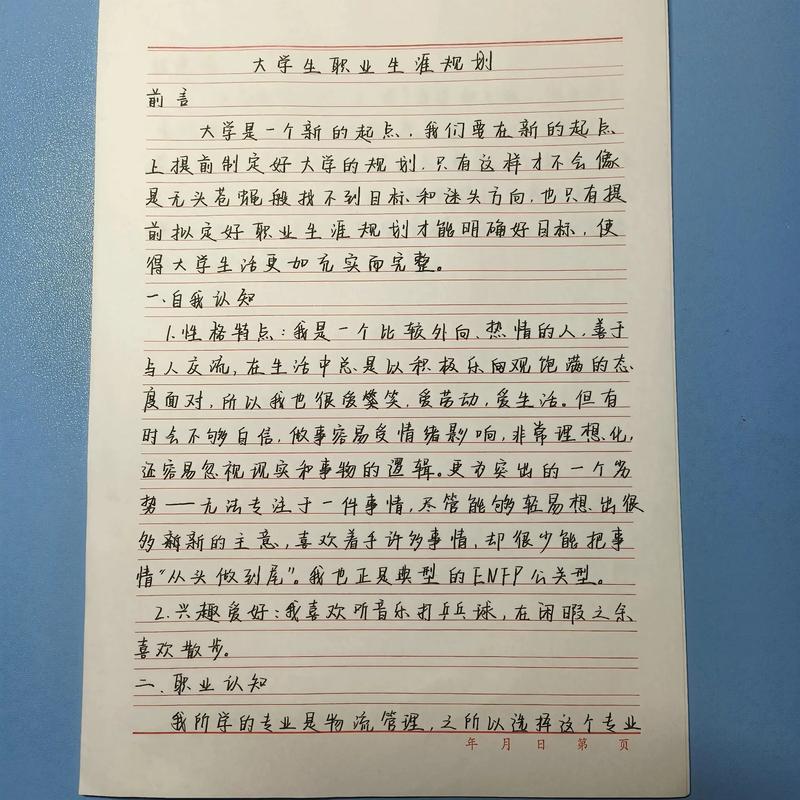 大学生职业生涯规划
前言
大学是一个新的起点，我们要在新的起点
上提前制定好大学的规划，只有这样才不会像
是无头苍蝇般找不到目标和迷失方向，也只有提
前拟定好职业生涯规划才能明确好目标，使
得大学生活更加充实而完整。
一、自我认知
1.性格特点：我是一个比较外向、热情的人，善于
与人交流，在生活中总是以积极乐观饱满的态
度面对，所以我也很爱笑，爱劳动，爱生活。但有
时会不够自信，做事容易受情绪影响，非常理想化，
还容易忽视现实和事物的逻辑。更为突出的一个劣
势——无法专注于一件事情，尽管能够轻易想出很
多新的主意，喜欢着手许多事情，却很少能把事
情“从头做到尾”。我也正是典型的ENFP公关型。
2.兴趣爱好：我喜欢听音乐打乒乓球，在闲暇之余
喜欢散步。
二、职业认知
我所学的专业是物流管理，之所以选择这个专业
年 月 日 第 页